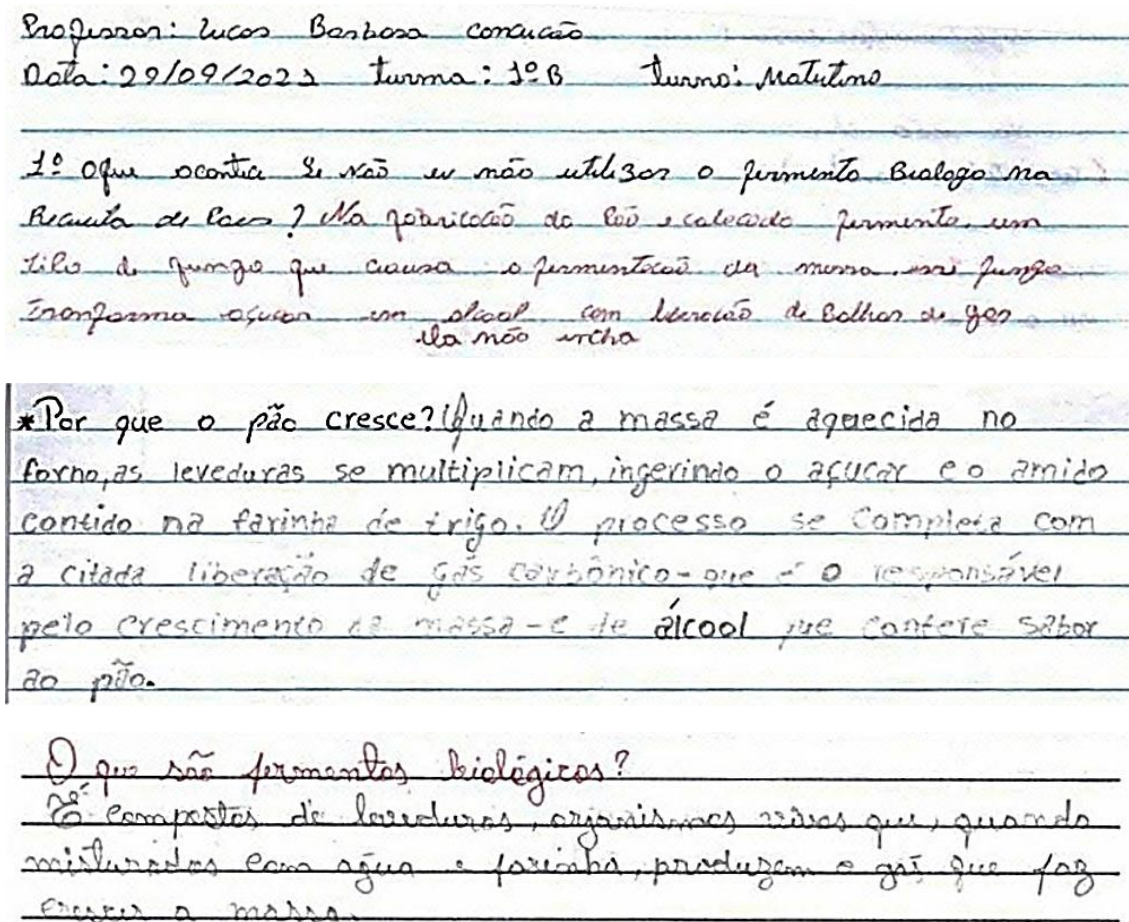 Professor: Lucas Barbosa conceicão
Data: 29/09/2021 turma: 1º B turno: Matutino
1º Oque acontece se não eu não utilizar o fermento Biologo na
Receita de Paes? Na fabricacão do Pão e colocado fermento, um
tipo de fungo que causa a fermentacaõ da massa. esse fungo
transforma açucar em alcool com liberacão de Bolhas de gas
ela não incha
*Por que o pão cresce? Quando a massa é aquecida no
forno, as leveduras se multiplicam, ingerindo o açúcar e o amido
contido na farinha de trigo. O processo se completa com
a citada liberação de gás carbônico-que é o responsável
pelo crescimento da massa-e de álcool que confere sabor
ao pão.
O que são fermentos biológicos?
É compostos de leveduras, organismos vivos que, quando
misturados com água e farinha, produzem o gás que faz
crescer a massa.